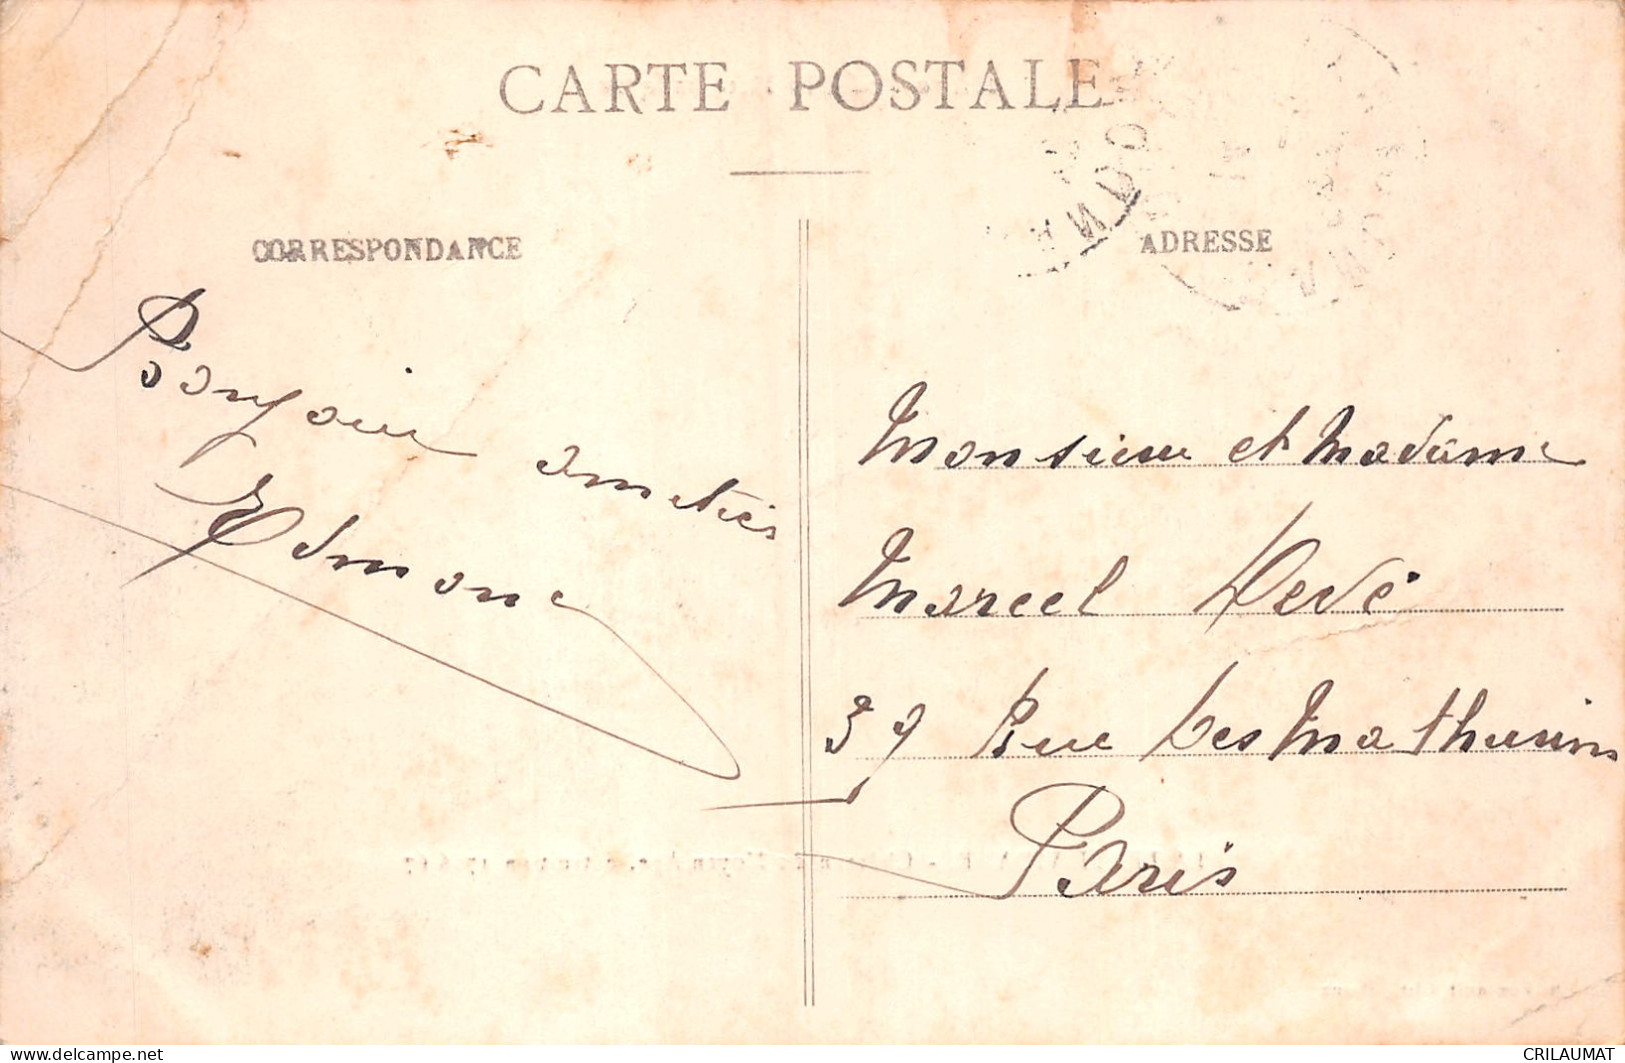 CARTE POSTALE
CORRESPONDANCE
ADRESSE
Bonjour amitiés
Edmond
Monsieur et Madame
Marcel Devé
39 Rue des Mathurins
Paris
www.delcampe.net
CRILAUMAT